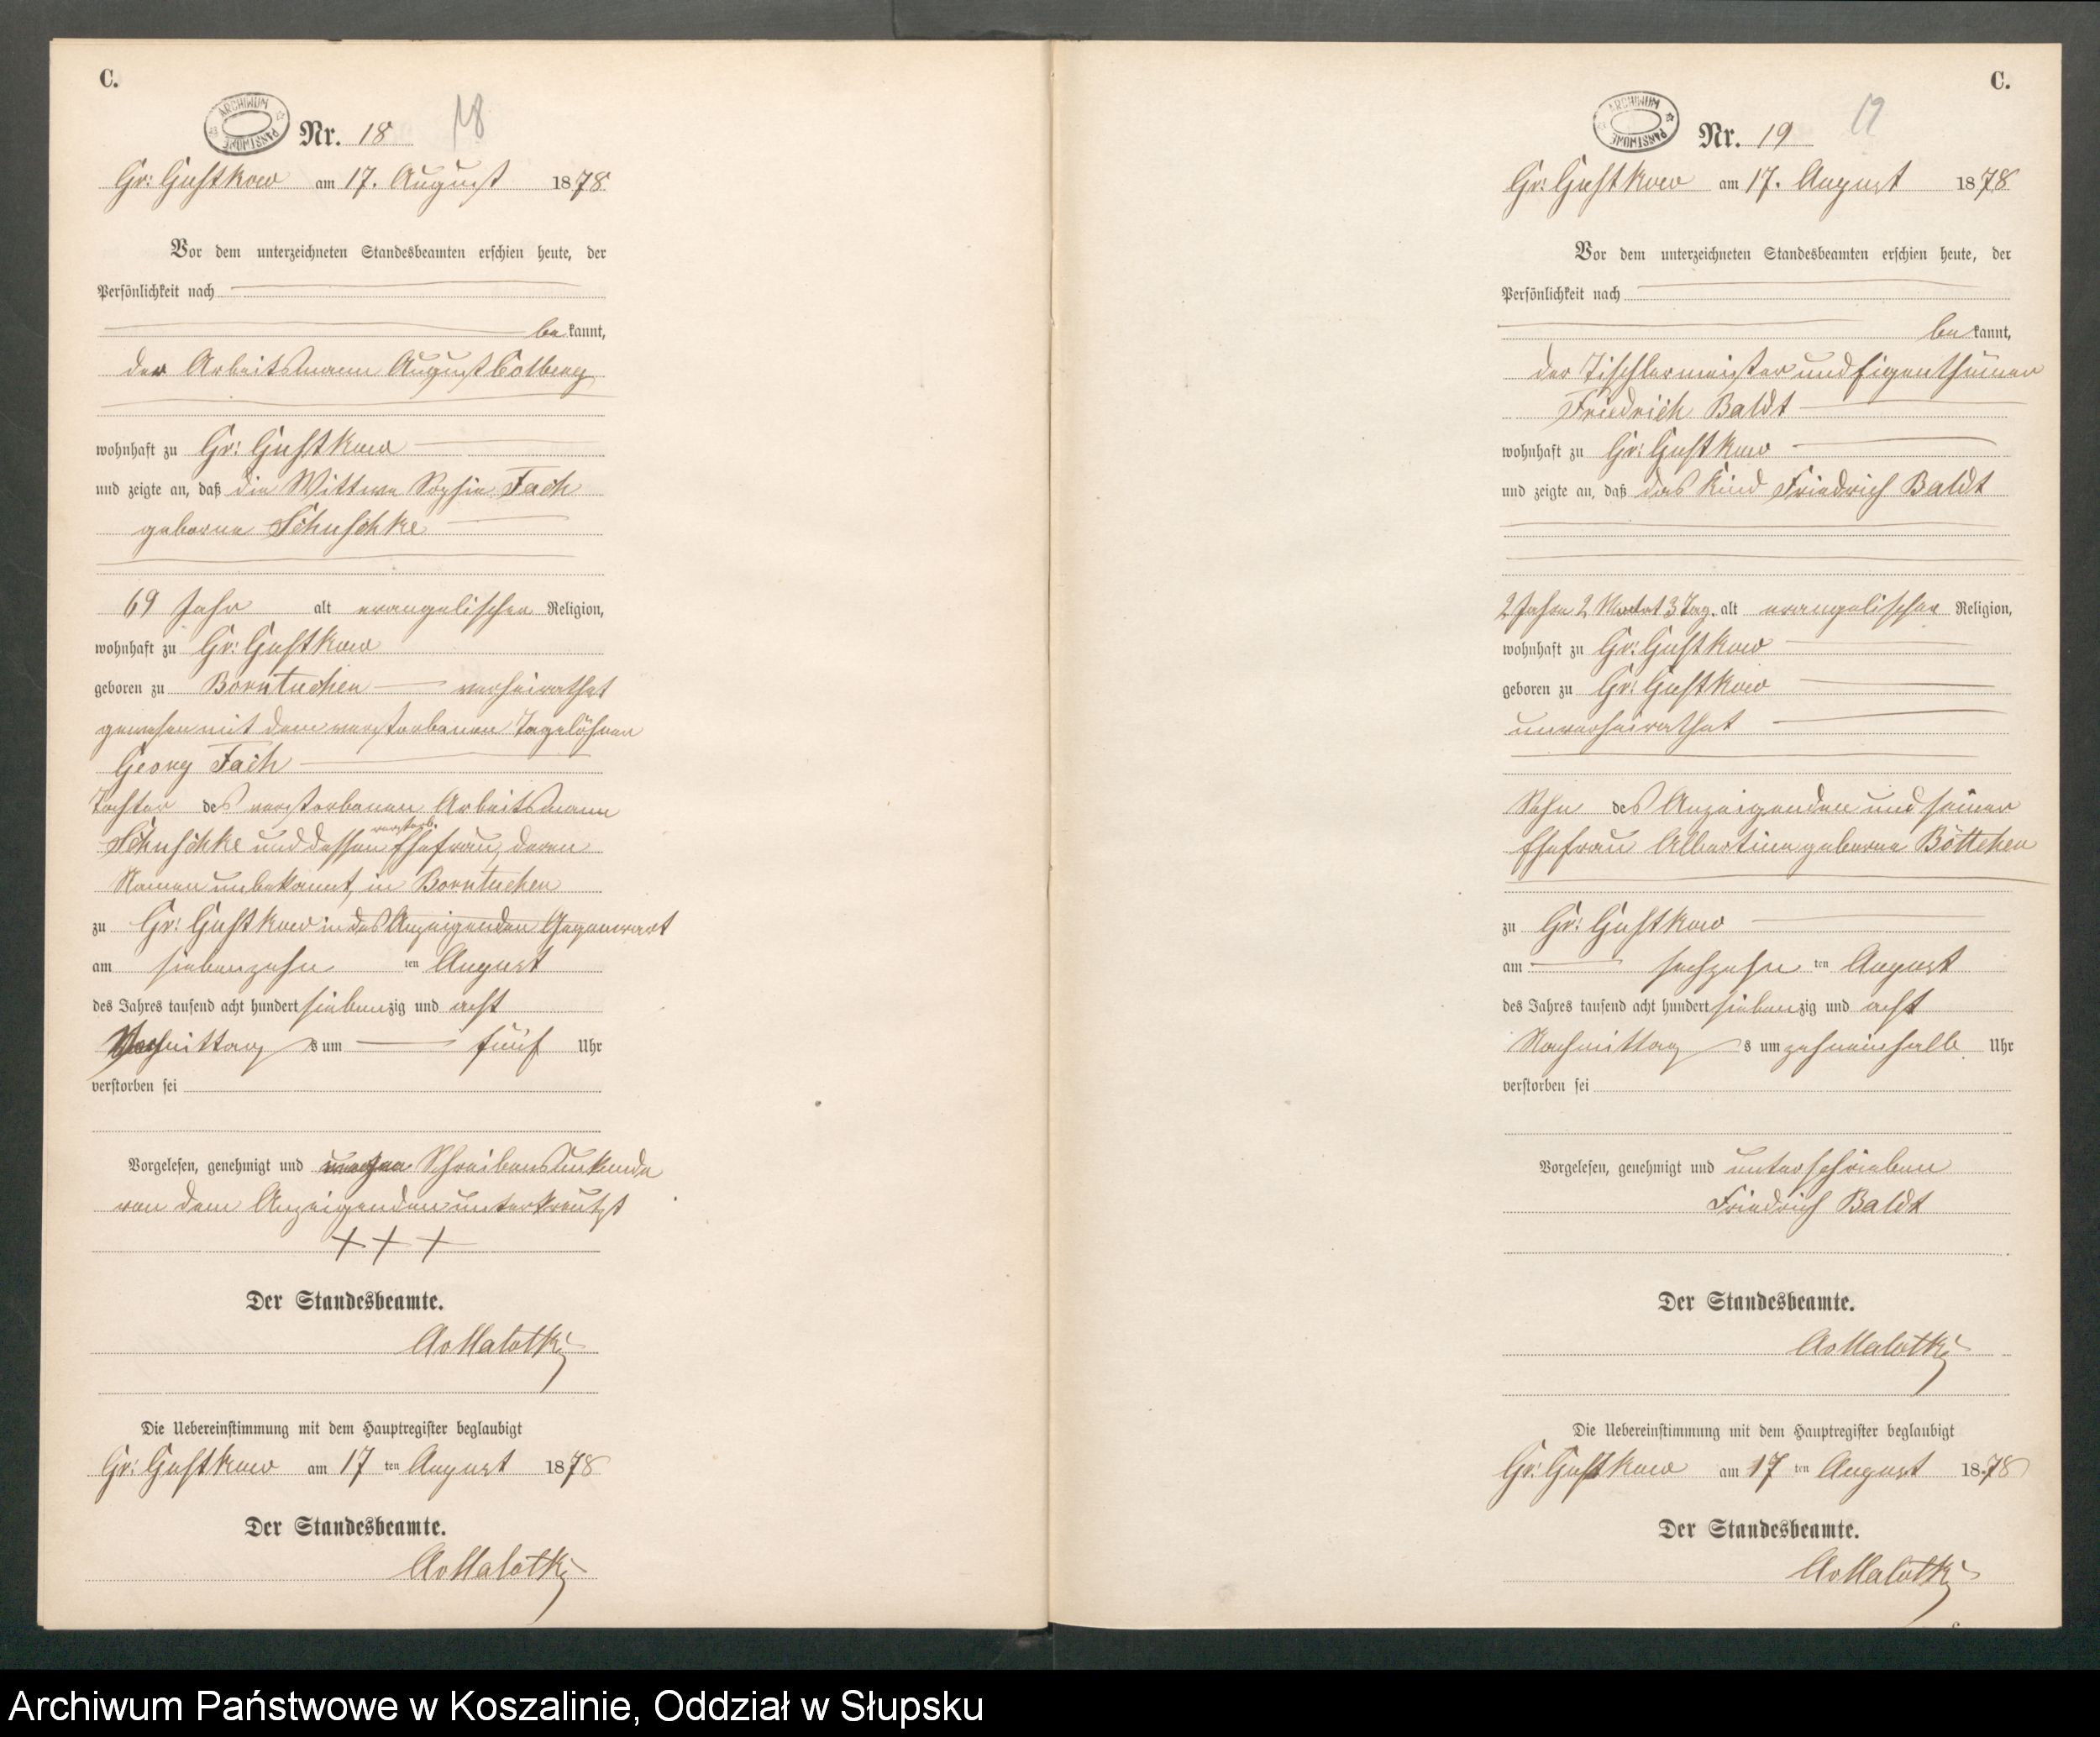 C.
ARCHIWUM PAŃSTWOWE
Nr. 18
18
Gr: Gustkow am 17. August 1878
Vor dem unterzeichneten Standesbeamten erschien heute, der
Persönlichkeit nach
bekannt,
der Arbeitsmann August Colberg
wohnhaft zu Gr: Gustkow
und zeigte an, daß die Wittwe Sophie Fach
geborne Schuschke
69 Jahr alt evangelischer Religion,
wohnhaft zu Gr: Gustkow
geboren zu Borntuchen verheirathet
gewesen mit dem verstorbenen Tagelöhner
Georg Fach
Tochter des verstorbenen Arbeitsmann
Schuschke und dessen verstorb. Ehefrau, deren
Namen unbekannt, in Borntuchen
zu Gr: Gustkow in des Anzeigenden Gegenwart
am siebenzehn ten August
des Jahres tausend acht hundert siebenzig und acht
mittag s um fünf Uhr
verstorben sei
Vorgelesen, genehmigt und wegen Schreibensunkunde
von dem Anzeigenden unterkreutzt
+ + +
Der Standesbeamte.
AvMalotki
Die Uebereinstimmung mit dem Hauptregister beglaubigt
Gr: Gustkow am 17 ten August 1878
Der Standesbeamte.
AvMalotki
C.
ARCHIWUM PAŃSTWOWE
Nr. 19
19
Gr: Gustkow am 17. August 1878
Vor dem unterzeichneten Standesbeamten erschien heute, der
Persönlichkeit nach
bekannt,
der Tischlermeister und Eigenthümer
Friedrich Baldt
wohnhaft zu Gr: Gustkow
und zeigte an, daß das Kind Friedrich Baldt
2 Jahre 2 Monat 3 Tag. alt evangelischer Religion,
wohnhaft zu Gr: Gustkow
geboren zu Gr: Gustkow
unverheirathet
Sohn des Anzeigenden und seiner
Ehefrau Albertine geborne Böttcher
zu Gr: Gustkow
am sechzehn ten August
des Jahres tausend acht hundert siebenzig und acht
Nachmittag s um zehneinhalb Uhr
verstorben sei
Vorgelesen, genehmigt und unterschrieben
Friedrich Baldt
Der Standesbeamte.
AvMalotki
Die Uebereinstimmung mit dem Hauptregister beglaubigt
Gr: Gustkow am 17 ten August 1878
Der Standesbeamte.
AvMalotki
Archiwum Państwowe w Koszalinie, Oddział w Słupsku